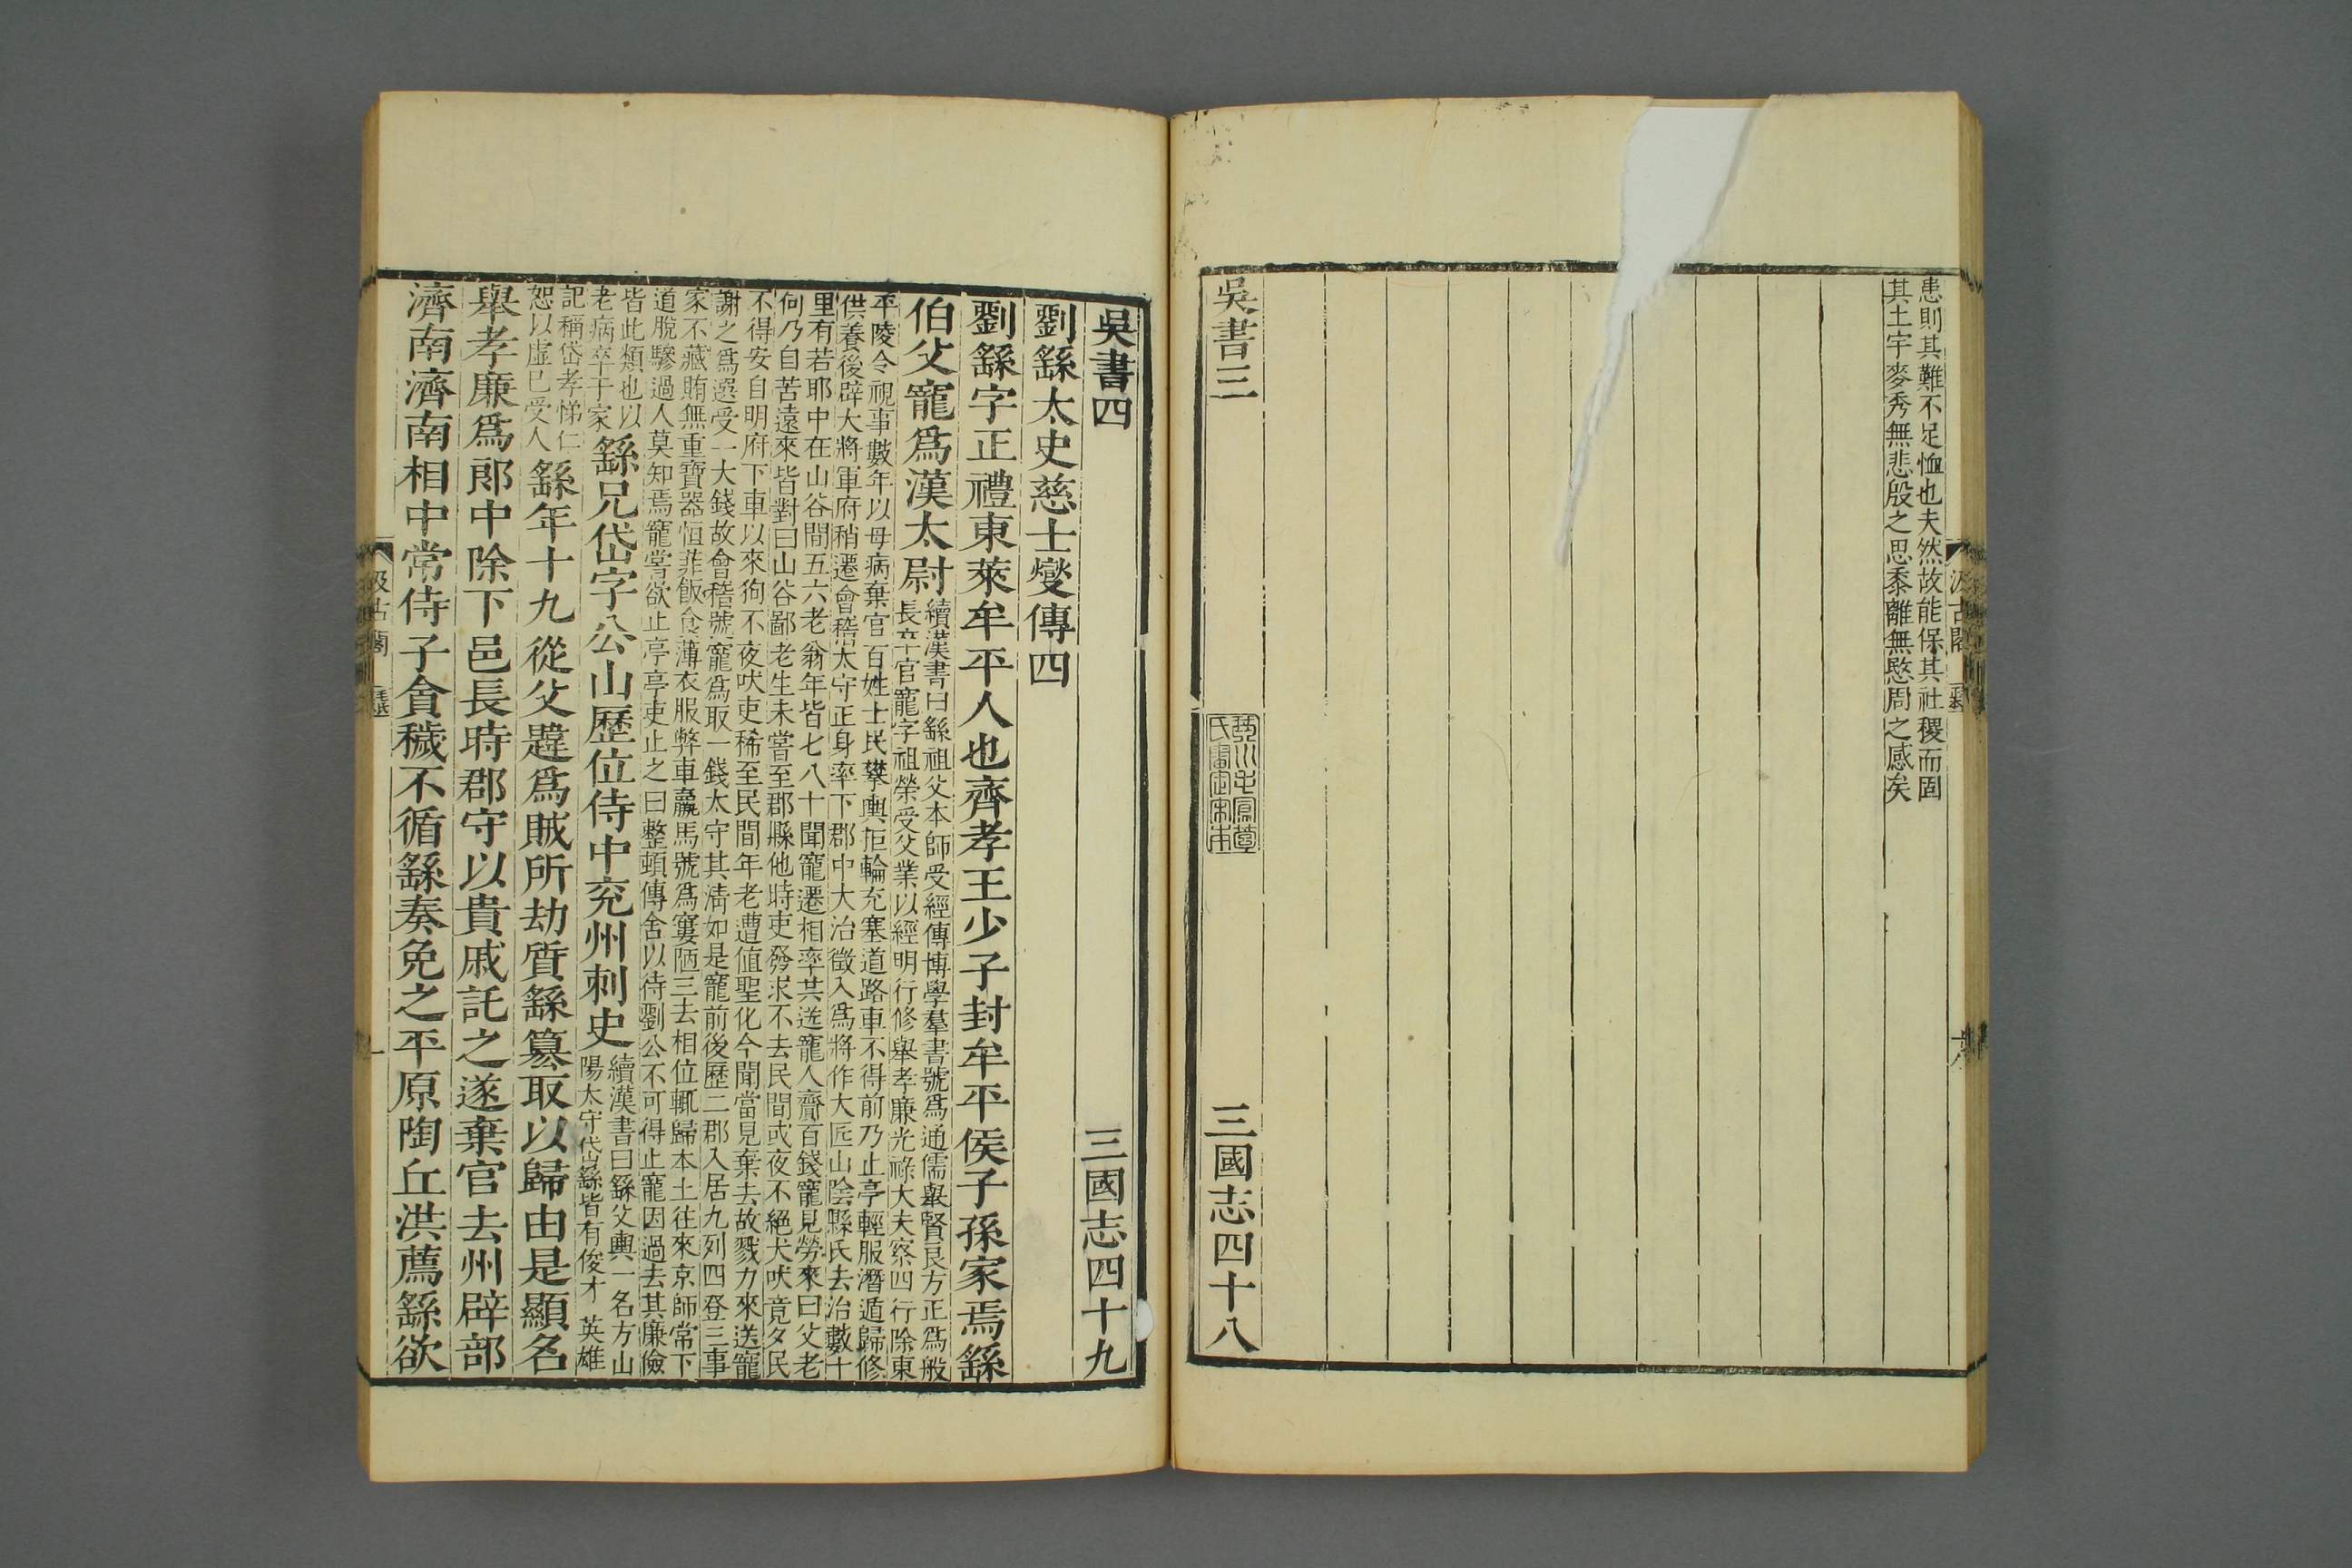 患則其難不足恤也夫然故能保其社稷而固
其土宇麥秀無悲殷之思黍離無愍周之感矣
吳書三
三國志四十八
汲古閣
吳書四
三國志四十九
劉繇太史慈士燮傳四
劉繇字正禮東萊牟平人也齊孝王少子封牟平侯子孫家焉繇
伯父寵爲漢太尉
續漢書曰繇祖父本師受經傳博學羣書號爲通儒舉賢良方正爲般
長卒官寵字祖榮受父業以經明行修舉孝廉光祿大夫察四行除東
平陵令視事數年以母病棄官百姓士民攀輿拒輪充塞道路車不得前乃止亭輕服潛遁歸修
供養後辟大將軍府稍遷會稽太守正身率下郡中大治徵入爲將作大匠山陰縣民去治數十
里有若耶中在山谷間五六老翁年皆七八十聞寵遷相率共送寵人齎百錢寵見勞來曰父老
何乃自苦遠來皆對曰山谷鄙老生未嘗至郡縣他時吏發求不去民間或夜不絕犬吠竟夕民
不得安自明府下車以來狗不夜吠吏稀至民間年老遭値聖化今聞當見棄去故戮力來送寵
謝之爲選受一大錢故會稽號寵爲取一錢太守其淸如是寵前後歷二郡入居九列四登三事
家不藏賄無重寶器恒菲飲食薄衣服弊車羸馬號爲窶陋三去相位輒歸本土往來京師常下
道脫驂過人莫知焉寵嘗欲止亭亭吏止之曰整頓傳舍以待劉公不可得止寵因過去其廉儉
皆此類也以
老病卒于家
繇兄岱字公山歷位侍中兖州刺史
續漢書曰繇父輿一名方山
陽太守岱繇皆有俊才 英雄
記稱岱孝悌仁
恕以虛己受人
繇年十九從父韙爲賊所劫質繇篡取以歸由是顯名
舉孝廉爲郎中除下邑長時郡守以貴戚託之遂棄官去州辟部
濟南濟南相中常侍子貪穢不循繇奏免之平原陶丘洪薦繇欲
汲古閣
一